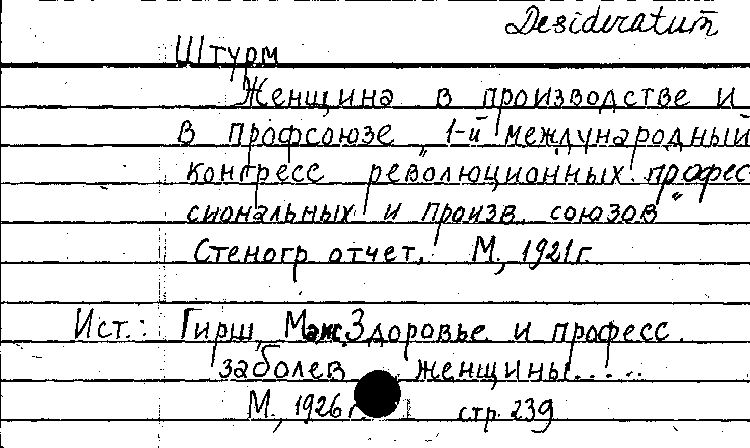 Desideratum
Штурм
Женщина в производстве и
в профсоюзе „1-й международный
конгресс революционных профес
сиональных и произв. союзов"
Стеногр отчет. М., 1921г.
Ист.: Гирш, Макс. Здоровье и професс.
заболев женщины.....
М., 1926 г. стр. 239